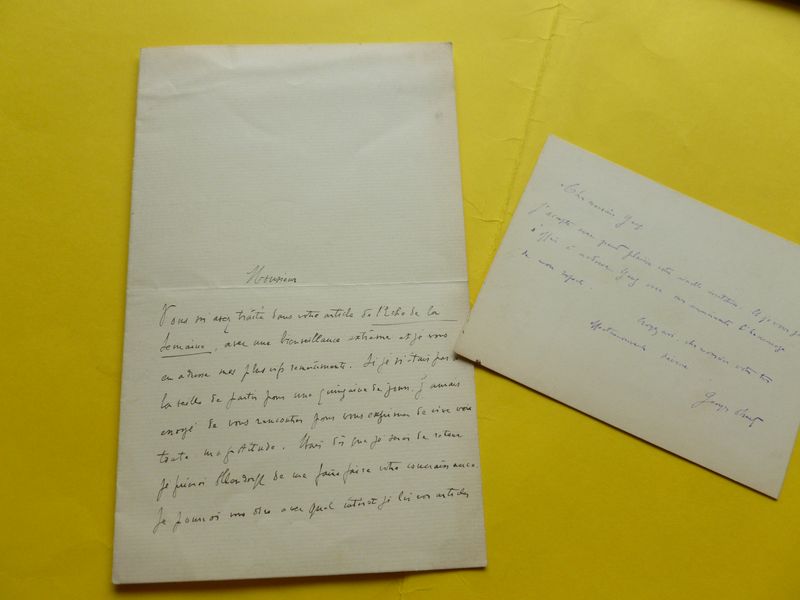 Monsieur
Vous m'avez traité dans votre article de l'Echo de la
Semaine, avec une bienveillance extrême et je vous
en adresse mes plus vifs remerciements. Si je n'étais pas à
la veille de partir pour une quinzaine de jours, j'aurais
essayé de vous rencontrer pour vous exprimer de vive voix
toute ma gratitude. Mais dès que je serai de retour
je prierai Ollendorff de me faire faire votre connaissance.
Je pourrai vous dire avec quel intérêt je lis vos articles
Cher monsieur
J'accepte avec grand plaisir votre
à madame avec mes l'hommage
de mon respect.
cher monsieur votre très
affectueusement
Georges Ohnet